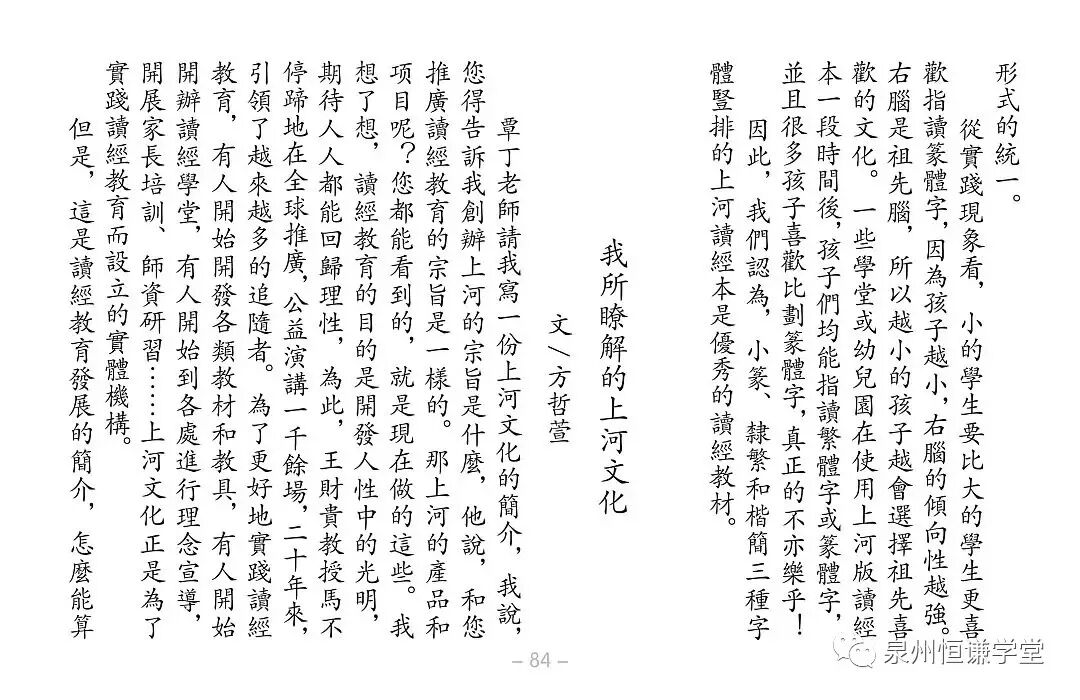 形式的統一。
從實踐現象看，小的學生要比大的學生更喜
歡指讀篆體字，因為孩子越小，右腦的傾向性越強。
右腦是祖先腦，所以越小的孩子越會選擇祖先喜
歡的文化。一些學堂或幼兒園在使用上河版讀經
本一段時間後，孩子們均能指讀繁體字或篆體字，
並且很多孩子喜歡比劃篆體字，真正的不亦樂乎！
因此，我們認為，小篆、隸繁和楷簡三種字
體豎排的上河讀經本是優秀的讀經教材。
我所瞭解的上河文化
文／方哲萱
覃丁老師請我寫一份上河文化的簡介，我說，
您得告訴我創辦上河的宗旨是什麼，他說，和您
推廣讀經教育的宗旨是一樣的。那上河的產品和
项目呢？您都能看到的，就是現在做的這些。我
想了想，讀經教育的目的是開發人性中的光明，
期待人人都能回歸理性，為此，王財貴教授馬不
停蹄地在全球推廣，公益演講一千餘場，二十年來，
引領了越來越多的追隨者。為了更好地實踐讀經
教育，有人開始開發各類教材和教具，有人開始
開辦讀經學堂，有人開始到各處進行理念宣導，
開展家長培訓、師資研習……上河文化正是為了
實踐讀經教育而設立的實體機構。
但是，這是讀經教育發展的簡介，怎麼能算
– 84 –
泉州恒谦学堂